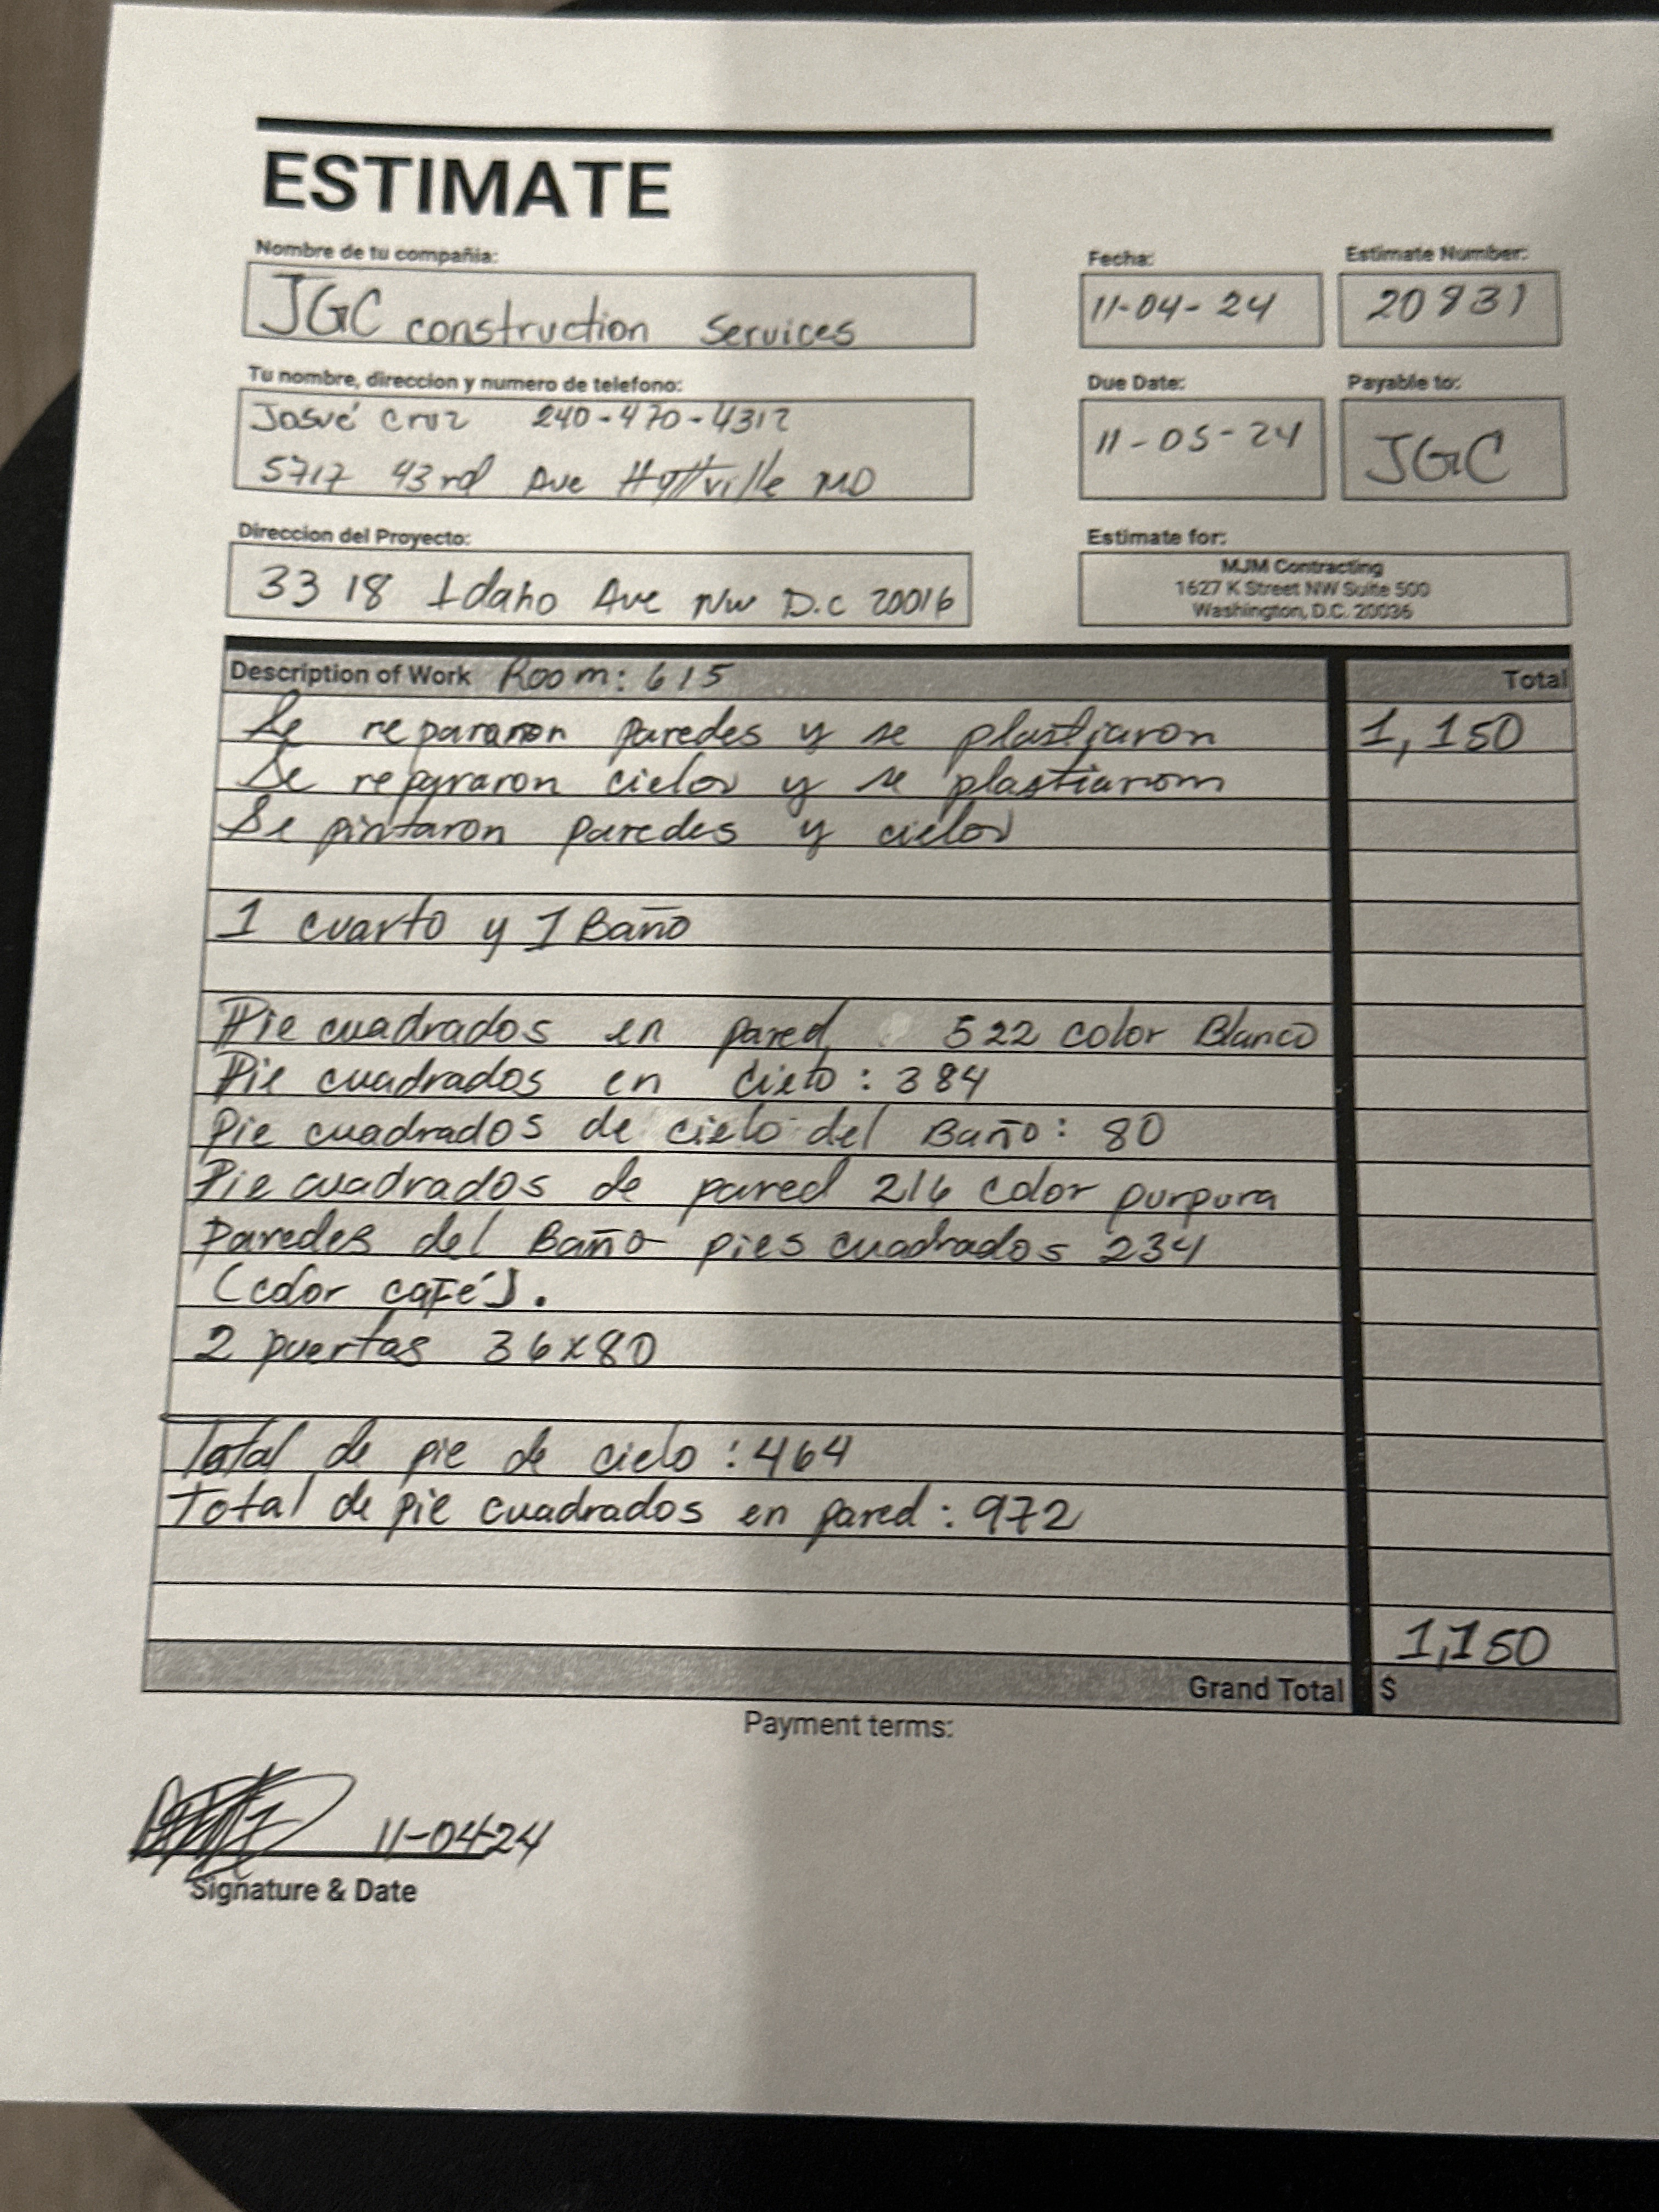 ESTIMATE
Nombre de tu compañia:
JGC construction Services
Fecha:
11-04-24
Estimate Number:
20831
Tu nombre, direccion y numero de telefono:
Josué Cruz 240-470-4312
5717 43rd Ave Hyttville MD
Due Date:
11-05-24
Payable to:
JGC
Direccion del Proyecto:
3318 Idaho Ave NW D.C 20016
Estimate for:
MJM Contracting
1627 K Street NW Suite 500
Washington, D.C. 20036
Description of Work Room: 615 Total
Se repararon paredes y se plastiaron 1,150
Se repararon cielos y se plastiarom
Se pintaron paredes y cielos
1 cuarto y 1 Baño
Pie cuadrados en pared 522 color Blanco
Pie cuadrados en cielo: 384
Pie cuadrados de cielo del Baño: 80
Pie cuadrados de pared 216 color purpura
Paredes del Baño pies cuadrados 234
(color café).
2 puertas 36x80
Total de pie de cielo: 464
Total de pie cuadrados en pared: 972
1,150
Grand Total $
Payment terms:
11-04-24
Signature & Date